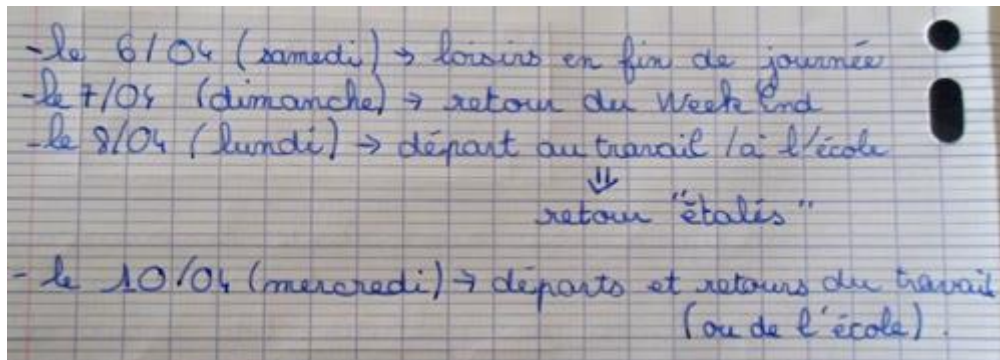 - le 6/04 (samedi) → loisirs en fin de journée
- le 7/04 (dimanche) → retour du Week End
- le 8/04 (lundi) → départ au travail / à l'école
⇓
retour "étalés"
- le 10/04 (mercredi) → départs et retours du travail
(ou de l'école).